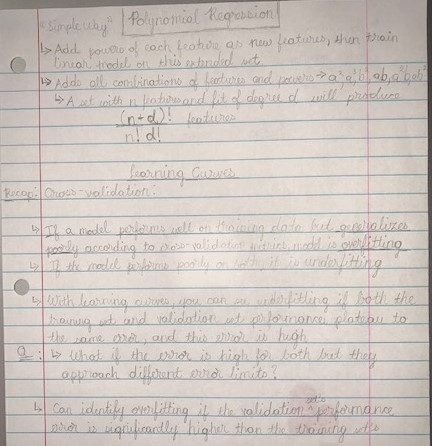 "Simple Way" Polynomial Regression
↳ Adds powers of each feature as new features, then train
linear model on this extended set
↳ Adds all combinations of features and powers →
↳ A set with n features and fit of degree d will produce
(n+d)! / n! d! features
Learning Curves
Recap: Cross-validation:
↳ If a model performs well on training data but generalizes
poorly according to cross validation metrics, model is overfitting
↳ If the model performs poorly on both, it is underfitting
↳ With learning curves, you can see underfitting if both the
training set and validation set performances plateau to
the same error, and this error is high
Q: ↳ What if the error is high for both but they
approach different error limits?
↳ Can identify overfitting if the validation set's performance
error is significantly higher than the training set's